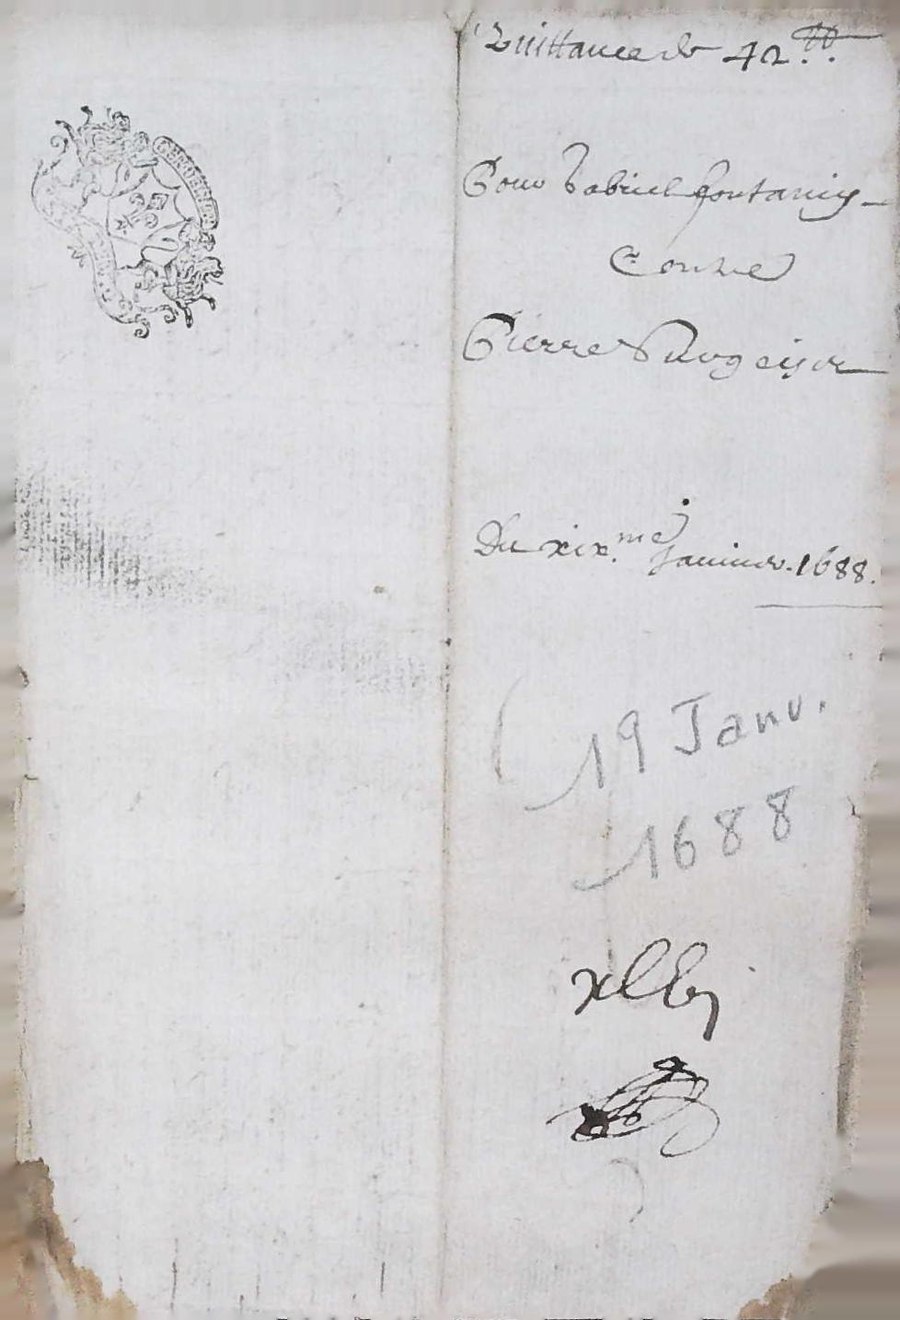 Quittance de 42 ₶.
Pour Gabriel fontanier
Contre
Pierre
Du xix.me Janvier. 1688.
19 Janv.
1688